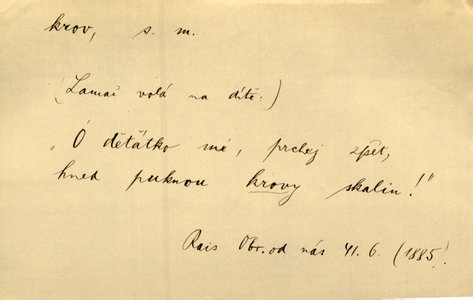 krov, s. m.
(Lamač volá na dítě:)
„Ó děťátko mé, prchej zpět,
hned puknou krovy skalin!"
Rais Obr. od nás 41. 6. (1885)!